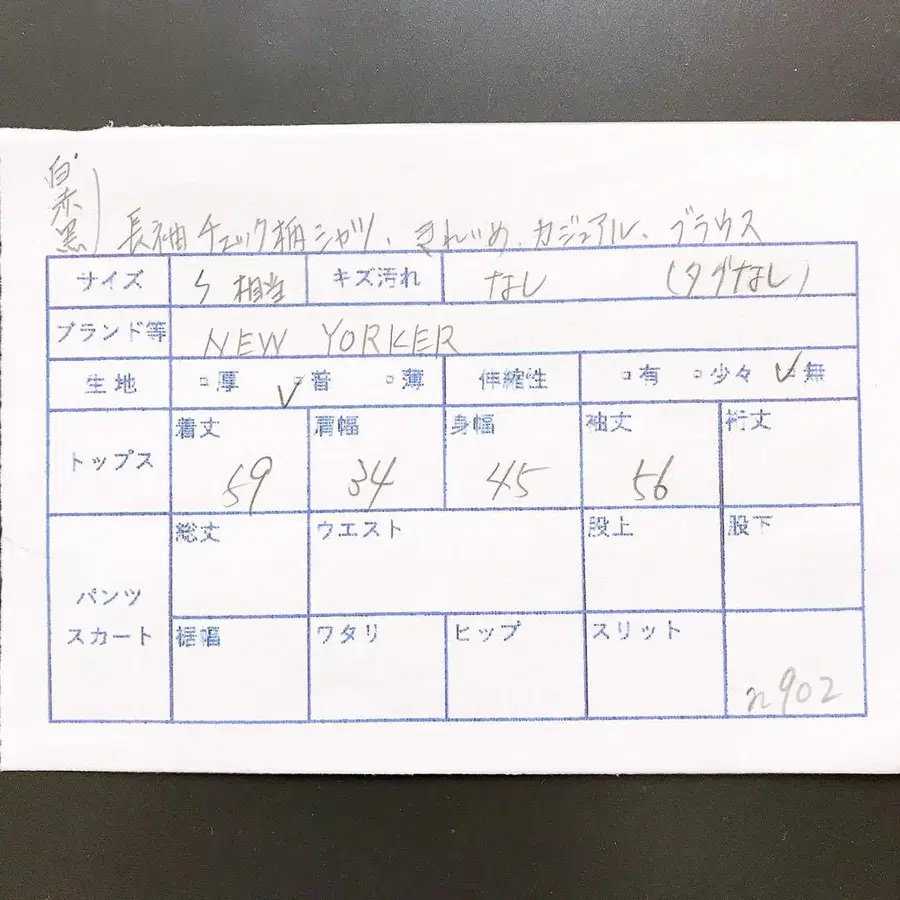 白
赤
黒
長袖 チェック柄シャツ、きれいめ、カジュアル、ブラウス
サイズ S 相当 キズ汚れ なし (タグなし)
ブランド等 NEW YORKER
生地 □厚 ✓普 □薄 伸縮性 □有 □少々 ✓無
トップス 着丈 肩幅 身幅 袖丈 裄丈
59 34 45 56
総丈 ウエスト 股上 股下
パンツ
スカート 裾幅 ワタリ ヒップ スリット
n902